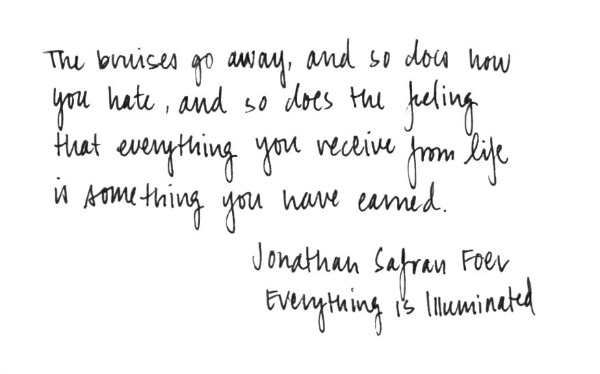 The bruises go away, and so does how
you hate, and so does the feeling
that everything you receive from life
is something you have earned.
Jonathan Safran Foer
Everything is Illuminated